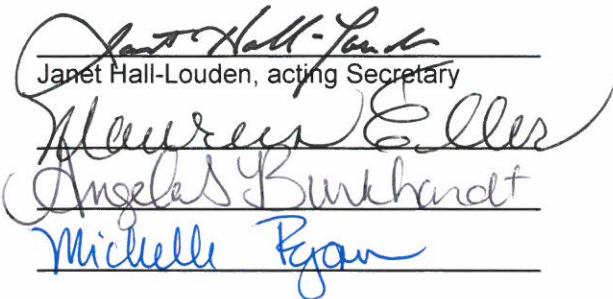 Janet Hall-Louden
Janet Hall-Louden, acting Secretary
Maureen Eller
Angela S Burkhardt
Michelle Ryan